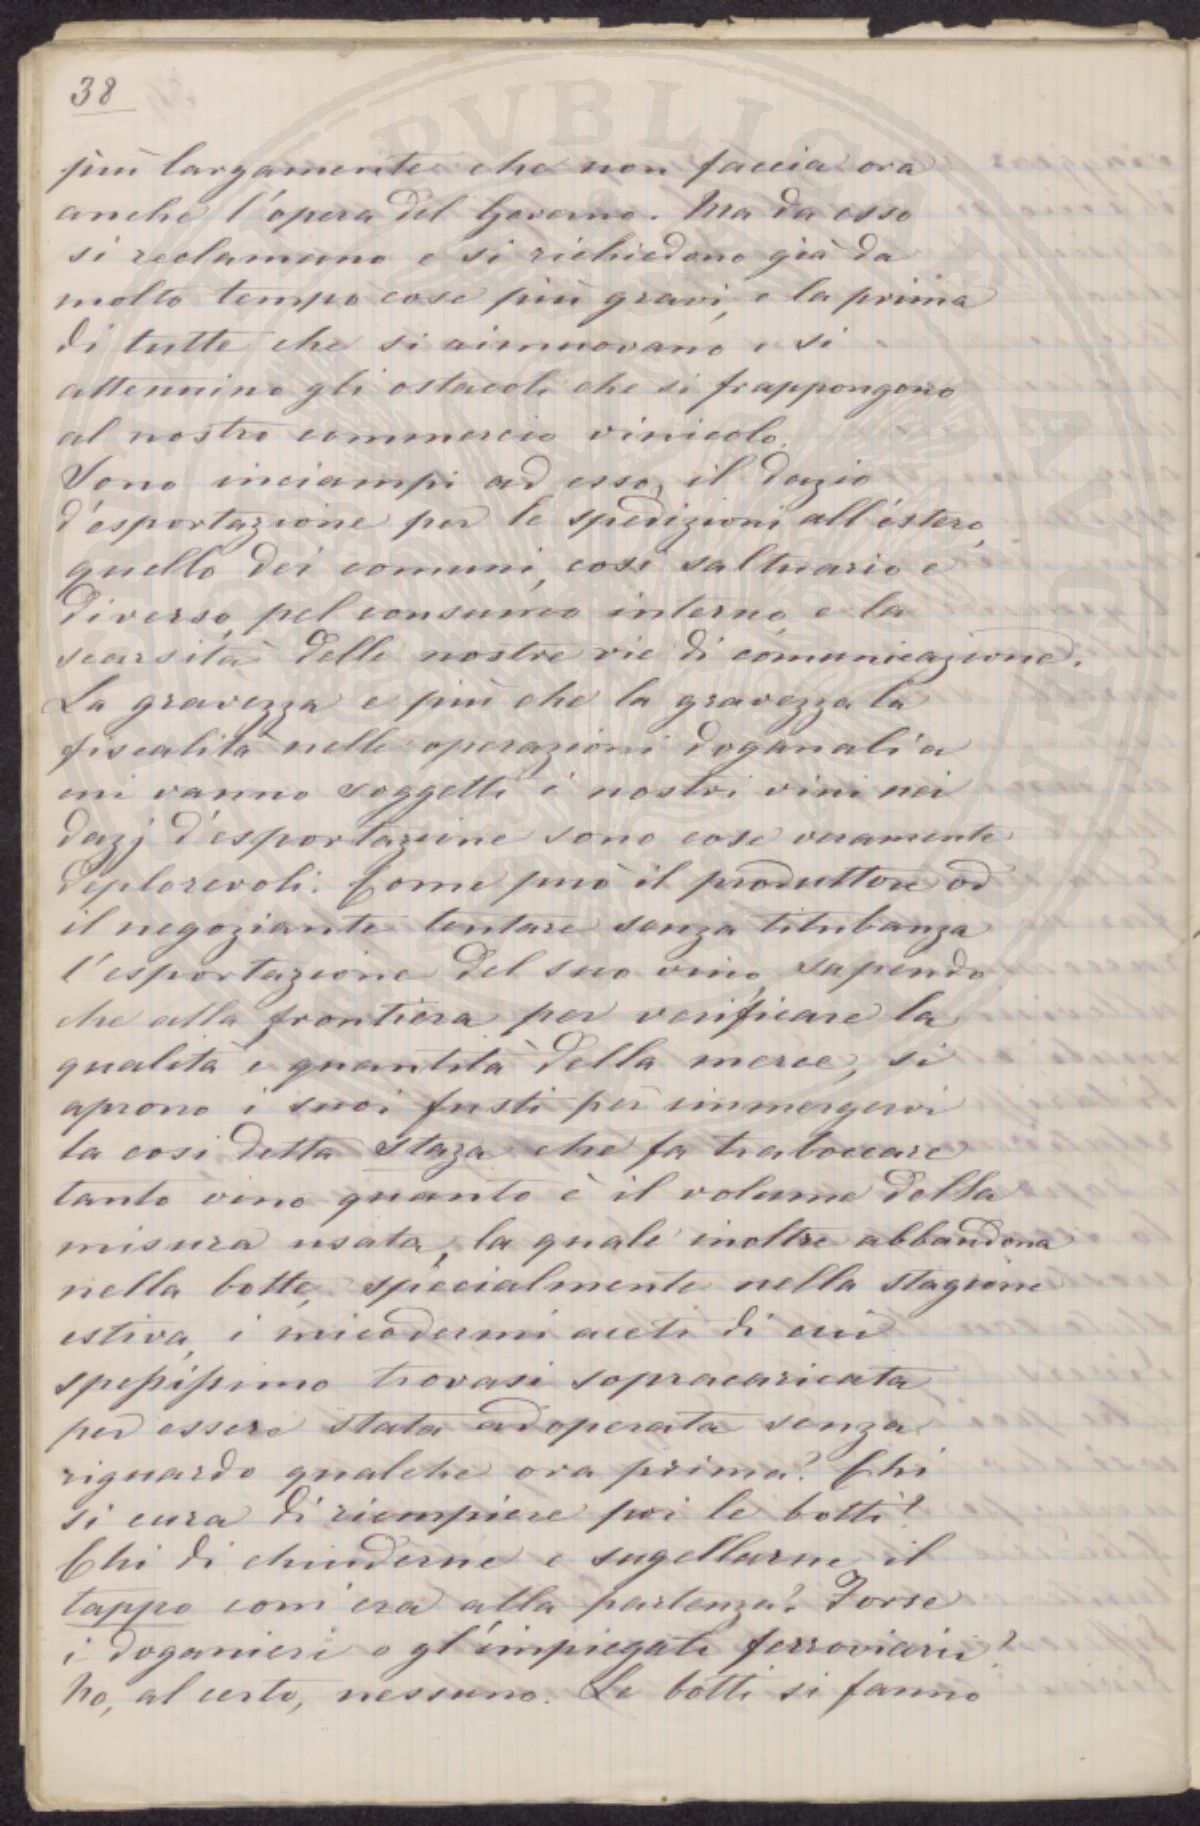 38
più largamente che non faccia ora
anche l'opera del Governo. Ma da esso
si reclamano e si richiedono già da
molto tempo cose più gravi, e la prima
di tutte che si rimuovano e si
attenuino gli ostacoli che si frappongono
al nostro commercio vinicolo.
Sono inciampi ad esso, il dazio
d'esportazione per le spedizioni all'estero,
quello dei comuni, così saltuario e
diverso, pel consumo interno, e la
scarsità delle nostre vie di comunicazione.
La gravezza e più che la gravezza la
fiscalità nelle operazioni doganali a
cui vanno soggetti i nostri vini nei
dazj d'esportazione sono cose veramente
deplorevoli. Come può il produttore od
il negoziante tentare senza titubanza
l'esportazione del suo vino, sapendo
che alla frontiera per verificare la
qualità e quantità della merce, si
aprono i suoi fusti per immergervi
la così detta staza che fa traboccare
tanto vino quanto è il volume della
misura usata, la quale inoltre abbandona
nella botte, specialmente nella stagione
estiva, i micodermi aceti di cui
spessissimo trovasi sopracaricata
per essere stata adoperata senza
riguardo qualche ora prima? Chi
si cura di riempiere poi le botti?
Chi di chiuderne e sugellarne il
tappo com'era alla partenza? Forse
i doganieri o gl'impiegati ferroviarii?
No, al certo, nessuno. Le botti si fanno
PVBLICA